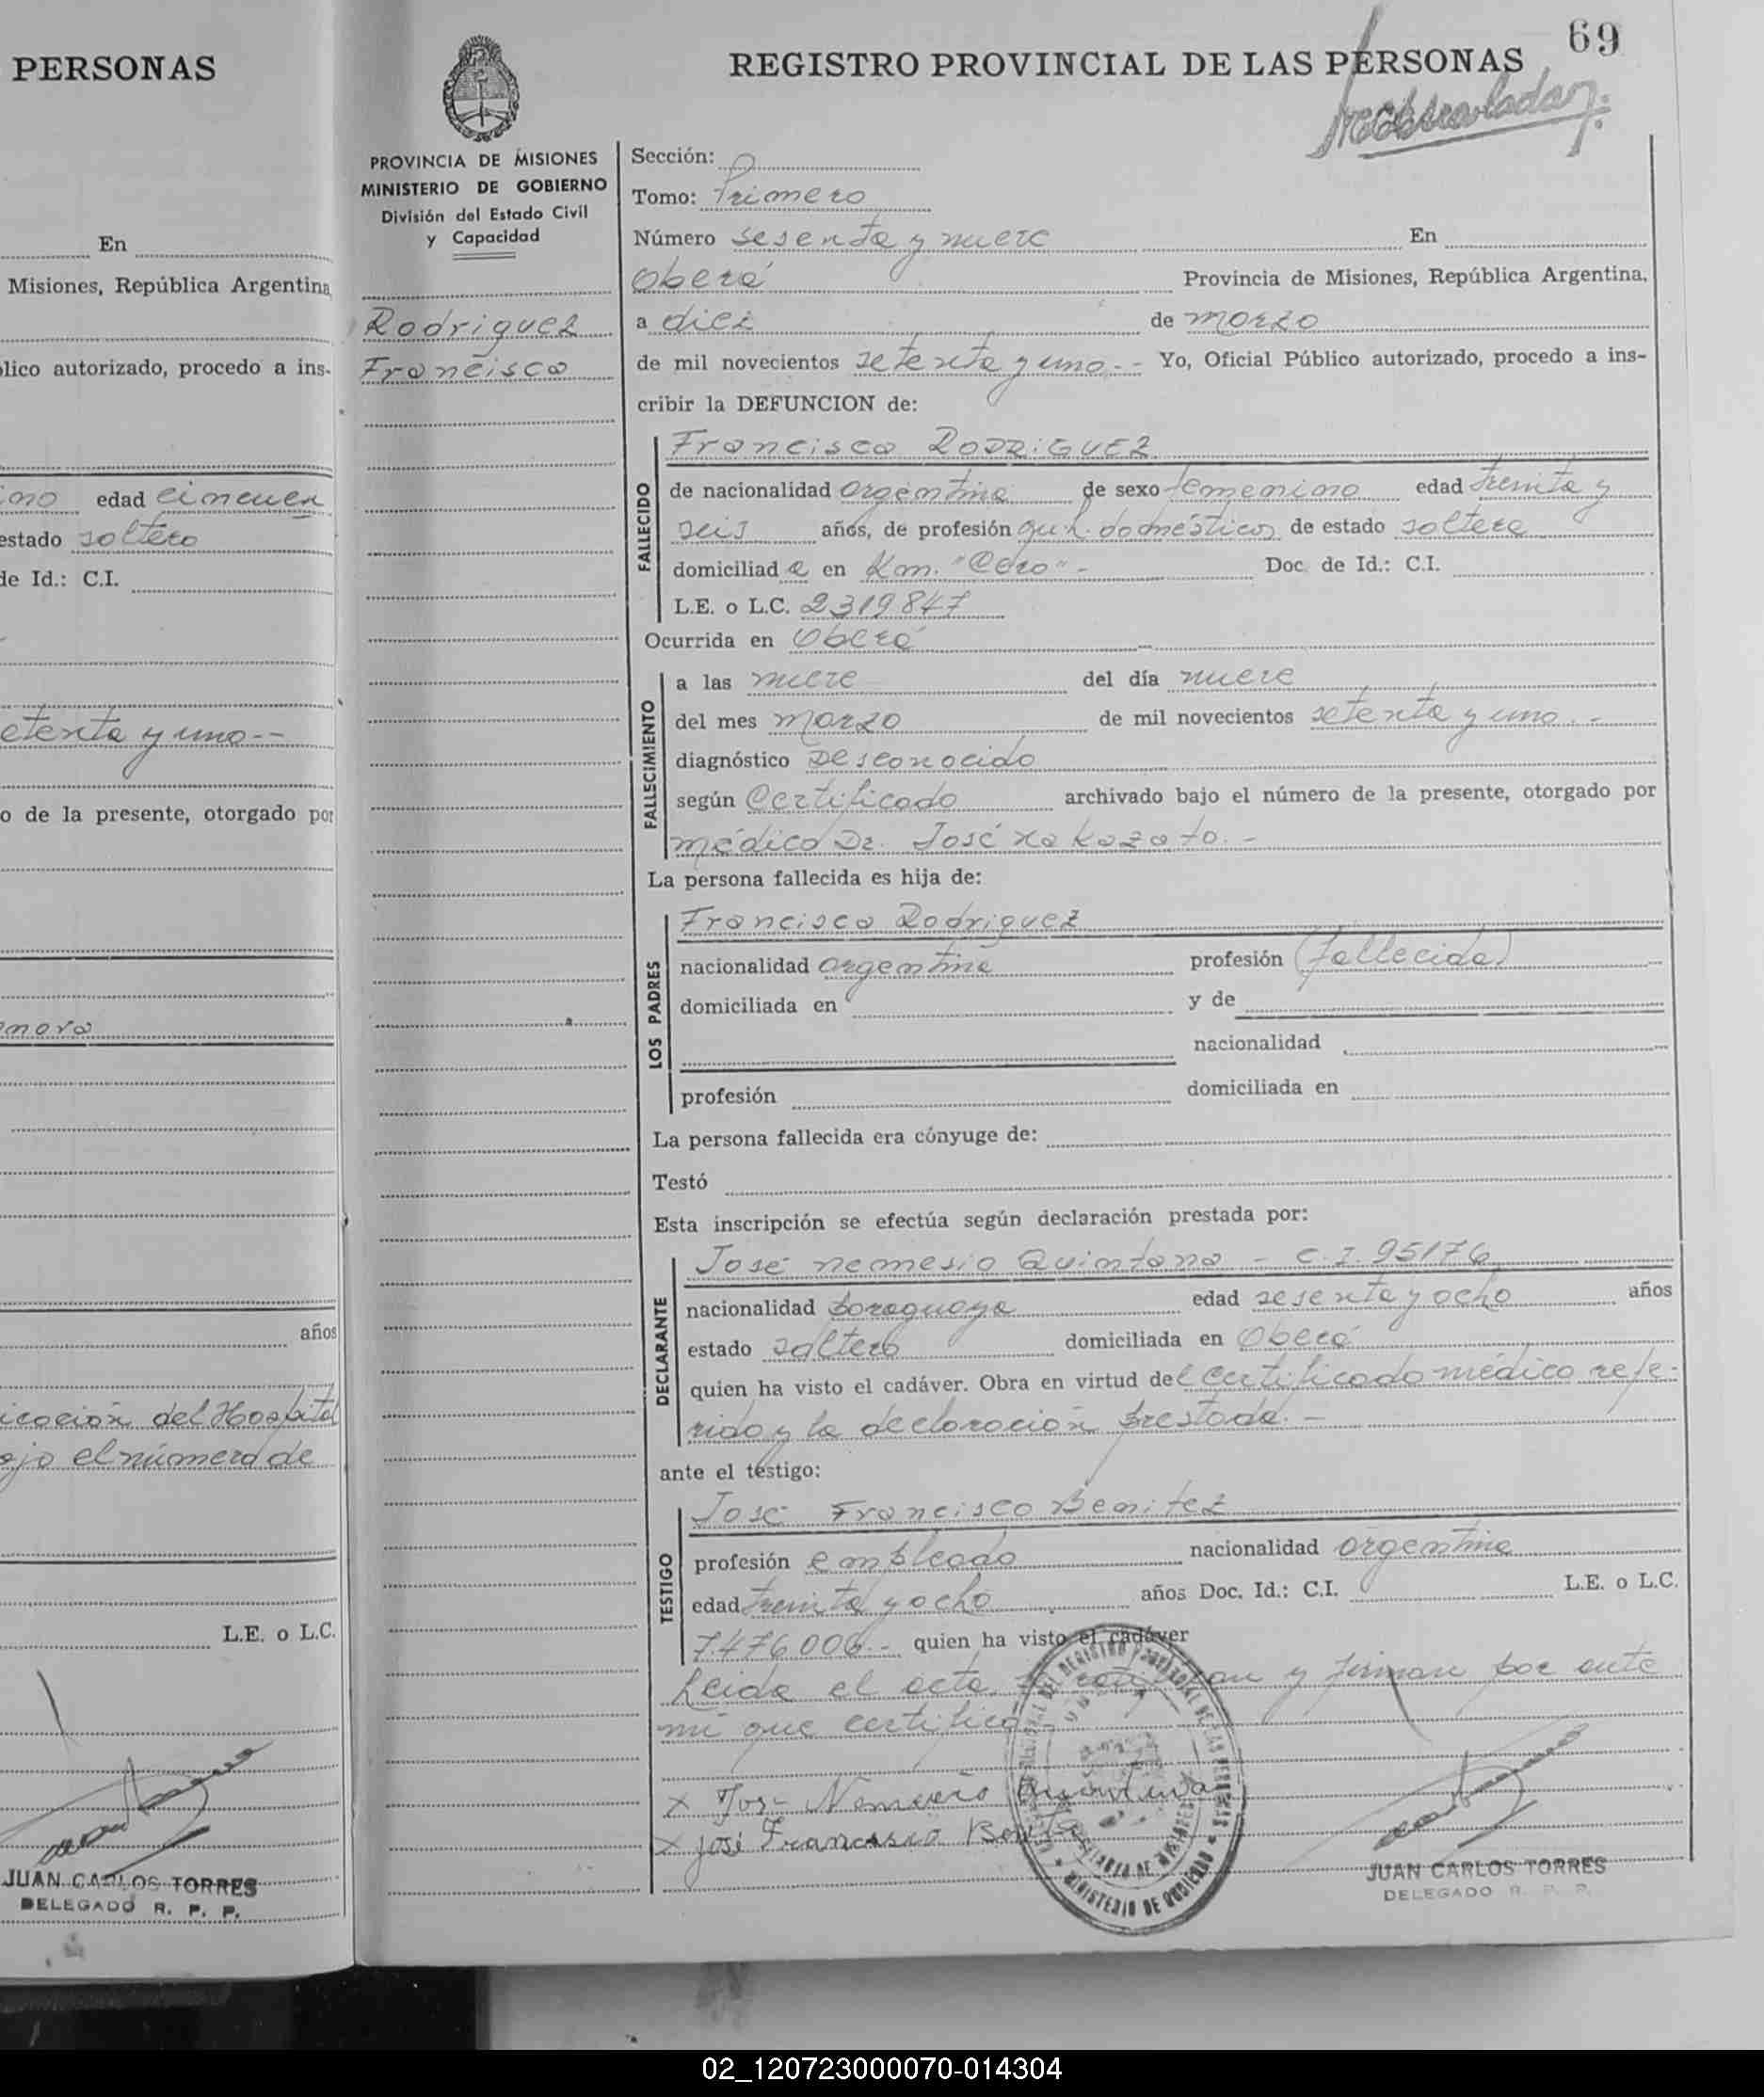 PERSONAS
En
Misiones, República Argentina
lico autorizado, procedo a ins-
edad
estado soltero
de Id.: C.I.
etenta y uno--
o de la presente, otorgado por
años
del Hospital
el número de
L.E. o L.C.
JUAN CARLOS TORRES
DELEGADO R. P. P.
69
REGISTRO PROVINCIAL DE LAS PERSONAS
PROVINCIA DE MISIONES
MINISTERIO DE GOBIERNO
División del Estado Civil
y Capacidad
Rodriguez
Francisca
Sección:
Tomo: Primero
Número sesenta y nueve En
Oberá Provincia de Misiones, República Argentina,
a diez de marzo
de mil novecientos setenta y uno.- Yo, Oficial Público autorizado, procedo a ins-
cribir la DEFUNCION de:
FALLECIDO
Francisca RODRIGUEZ
de nacionalidad argentina de sexo femenino edad treinta y
seis años, de profesión quh. domésticos de estado soltera
domiciliad a en Km. "Cero"- Doc. de Id.: C.I.
L.E. o L.C. 2319847
Ocurrida en Oberá
FALLECIMIENTO
a las nueve del día nueve
del mes marzo de mil novecientos setenta y uno.-
diagnóstico Desconocido
según Certificado archivado bajo el número de la presente, otorgado por
médico Dr. José
La persona fallecida es hija de:
LOS PADRES
Francisca Rodriguez
nacionalidad argentina profesión (fallecida)
domiciliada en y de
nacionalidad
profesión domiciliada en
La persona fallecida era cónyuge de:
Testó
Esta inscripción se efectúa según declaración prestada por:
DECLARANTE
José nemesio Quintana - C.I. 95176
nacionalidad paraguaya edad sesenta y ocho años
estado soltero domiciliada en Oberá
quien ha visto el cadáver. Obra en virtud del certificado médico refe-
rido y la declaración prestada.-
ante el testigo:
TESTIGO
José Francisco Benitez
profesión empleado nacionalidad argentina
edad treinta y ocho años Doc. Id.: C.I. L.E. o L.C.
7.476.006.- quien ha visto el cadáver
Leida el acta, y firman por ante
mi que certifico
x José Nemesio Quintana
x josé Francisco
MINISTERIO DE GOBIERNO
JUAN CARLOS TORRES
DELEGADO R. P. P.
02_120723000070-014304